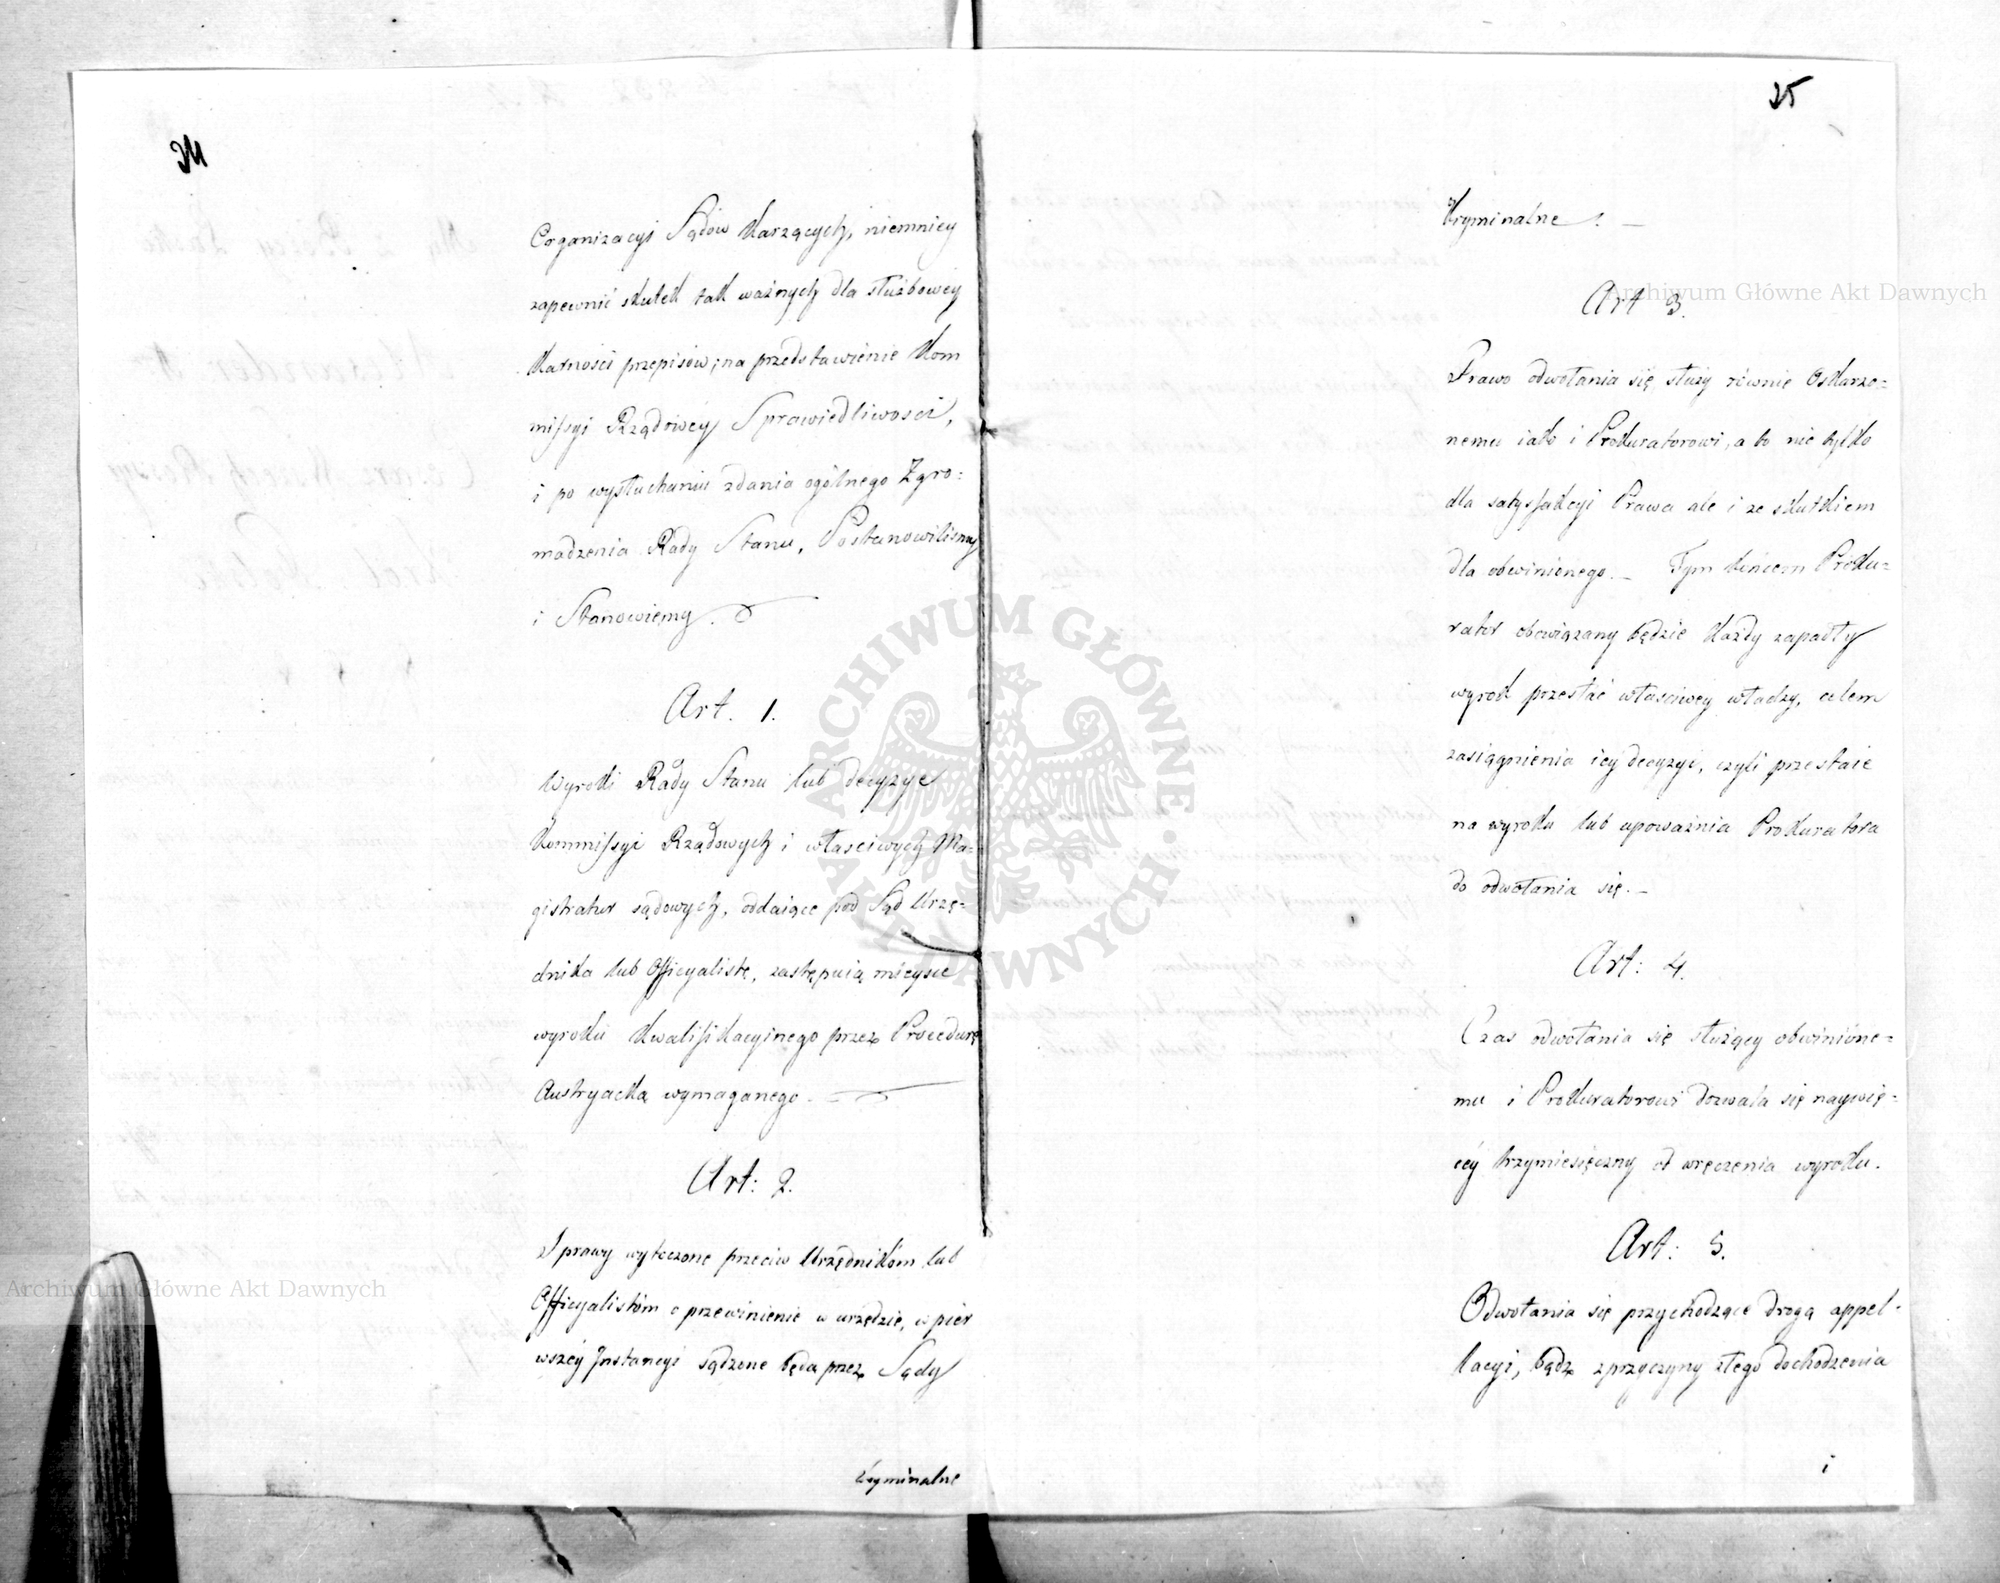 24
Organizacyi Sądów Karzących, niemniey
zapewnić skutek tak ważnych dla służbowey
Karności przepisów; na przedstawienie Kom
missyi Rządowey Sprawiedliwości,
i po wysłuchaniu zdania ogólnego Zgro=
madzenia Rady Stanu, Postanowiliśmy
i Stanowiemy.
Art. 1.
Wyroki Rady Stanu lub decyzye
Kommissyi Rządowych i właściwych Ma=
gistratur sądowych, oddaiące pod Sąd Urzę=
dnika lub Officyalistę, zastępuią mieysce
wyroku Kwalifikacyinego przez Procedurę
Austryacką wymaganego.
Art: 2.
Sprawy wytoczone przeciw Urzędnikom lub
Officyalistóm o przewinienie w urzędzie, w pier
wszey Instancyi sądzone będą przez Sądy
Kryminalne
25
Kryminalne. —
Art 3.
Prawo odwołania się służy równie Oskarżo=
nemu iako i Prokuratorowi, a to nie tylko
dla satysfakcyi Prawa ale i ze skutkiem
dla obwinionego. — Tym końcem Proku=
rator obowiązany będzie każdy zapadły
wyrok przesłać właściwey władzy, celem
zasiągnienia iey decyzyi, czyli przestaie
na wyroku lub upoważnia Prokuratora
do odwołania się. —
Art: 4.
Czas odwołania się służący obwinione=
mu i Prokuratorowi dozwala się naywię=
cey trzymiesięczny od wręczenia wyroku.
Art: 5.
Odwołania się przychodzące drogą appel=
lacyi, bądź z przyczyny złego dochodzenia
i
Archiwum Główne Akt Dawnych
Archiwum Główne Akt Dawnych
ARCHIWUM GŁÓWNE AKT DAWNYCH